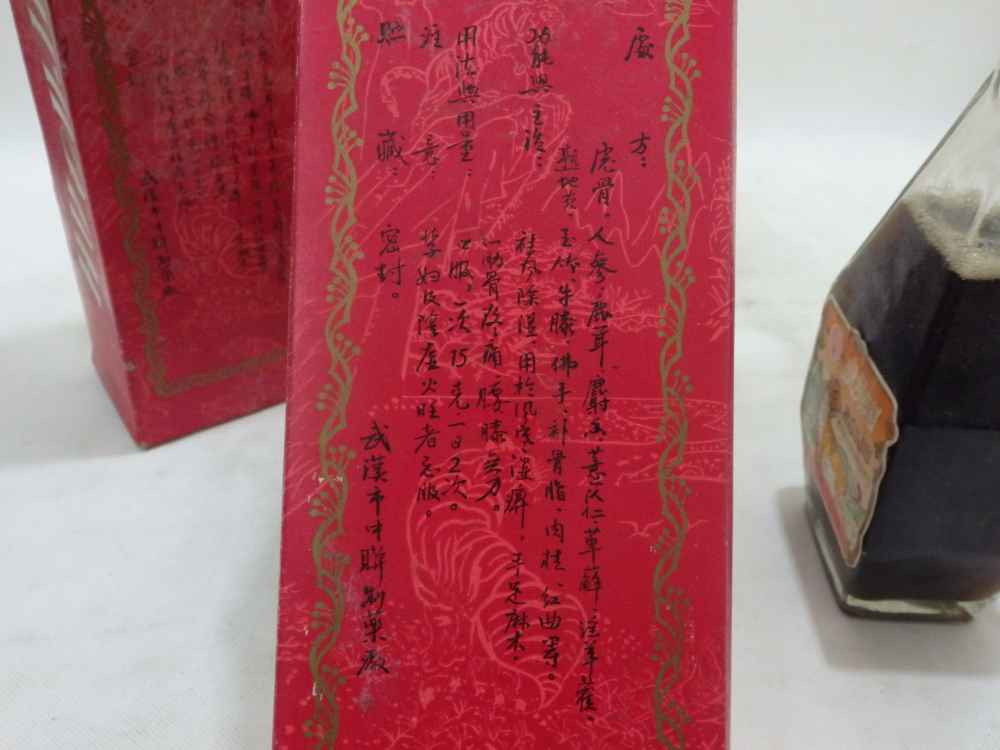 處方：
虎骨、人參、鹿茸、麝香、薏苡仁、萆薢、淫羊藿、
熟地黃、玉竹、牛膝、佛手、補骨脂、肉桂、紅曲等。
功能與主治：祛風除濕，用於風寒濕痺，手足麻木，
筋骨疼痛、腰膝無力。
用法與用量：口服。一次15克，一日2次。
注意：孕婦及陰虛火旺者忌服。
貯藏：密封。
武漢市中聯制藥廠